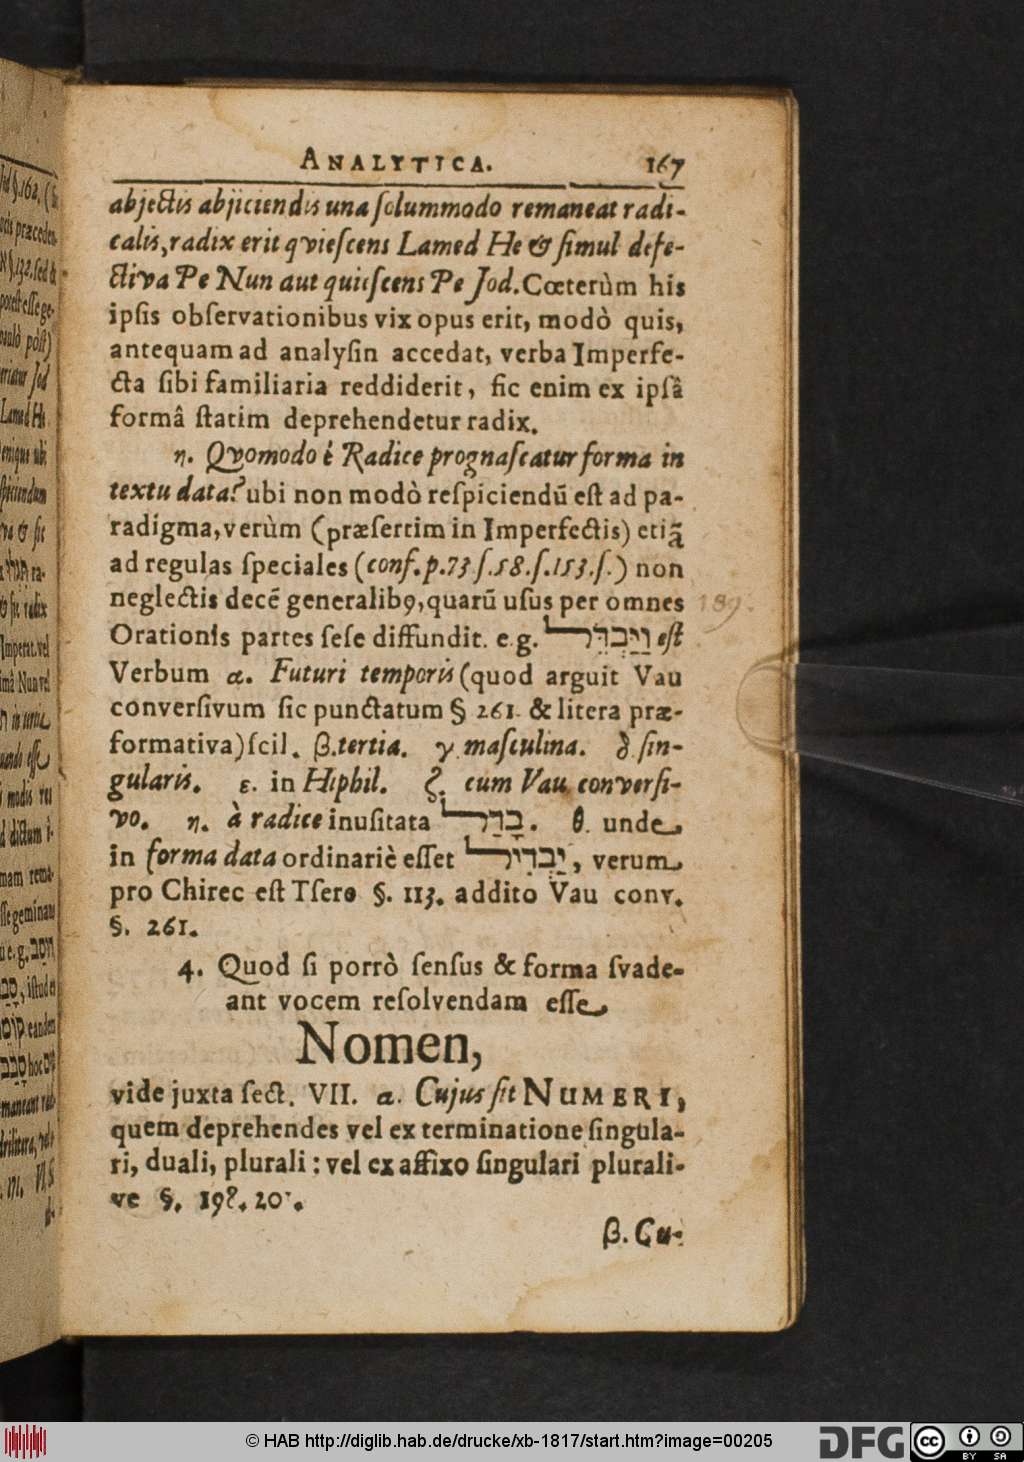 ANALYTICA. 167
abjectis abjiciendis una ſolummodo remaneat radi-
calis, radix erit qvieſcens Lamed He & ſimul defe-
ctiva Pe Nun aut quieſcens Pe Jod. Cœterùm his
ipſis obſervationibus vix opus erit, modò quis,
antequam ad analyſin accedat, verba Imperfe-
cta ſibi familiaria reddiderit, ſic enim ex ipſâ
formâ ſtatim deprehendetur radix.
η. Qvomodo è Radice prognaſcatur forma in
textu data? ubi non modò reſpiciendū eſt ad pa-
radigma, verùm (præſertim in Imperfectis) etiã
ad regulas ſpeciales (conf. p. 73 ſ. 58. ſ. 153. ſ.) non
neglectis decē generalibꝰ, quarū uſus per omnes
Orationis partes ſeſe diffundit. e. g. וַיַּבְדֵּל eſt
Verbum α. Futuri temporis (quod arguit Vau
converſivum ſic punctatum § 261. & litera præ-
formativa) ſcil. β. tertia. γ. maſculina. δ. ſin-
gularis. ε. in Hiphil. ζ. cum Vau converſi-
vo. η. à radice inuſitata בָּדַל. θ. unde
in forma data ordinariè eſſet יַבְדִּיל, verum
pro Chirec eſt Tſere §. 113. addito Vau conv.
§. 261.
4. Quod ſi porrò ſenſus & forma ſvade-
ant vocem reſolvendam eſſe
Nomen,
vide juxta ſect. VII. α. Cujus ſit NUMERI,
quem deprehendes vel ex terminatione ſingula-
ri, duali, plurali: vel ex affixo ſingulari plurali-
ve §. 198. 20.
β. Cu-
189.
© HAB http://diglib.hab.de/drucke/xb-1817/start.htm?image=00205
DFG
cc BY SA